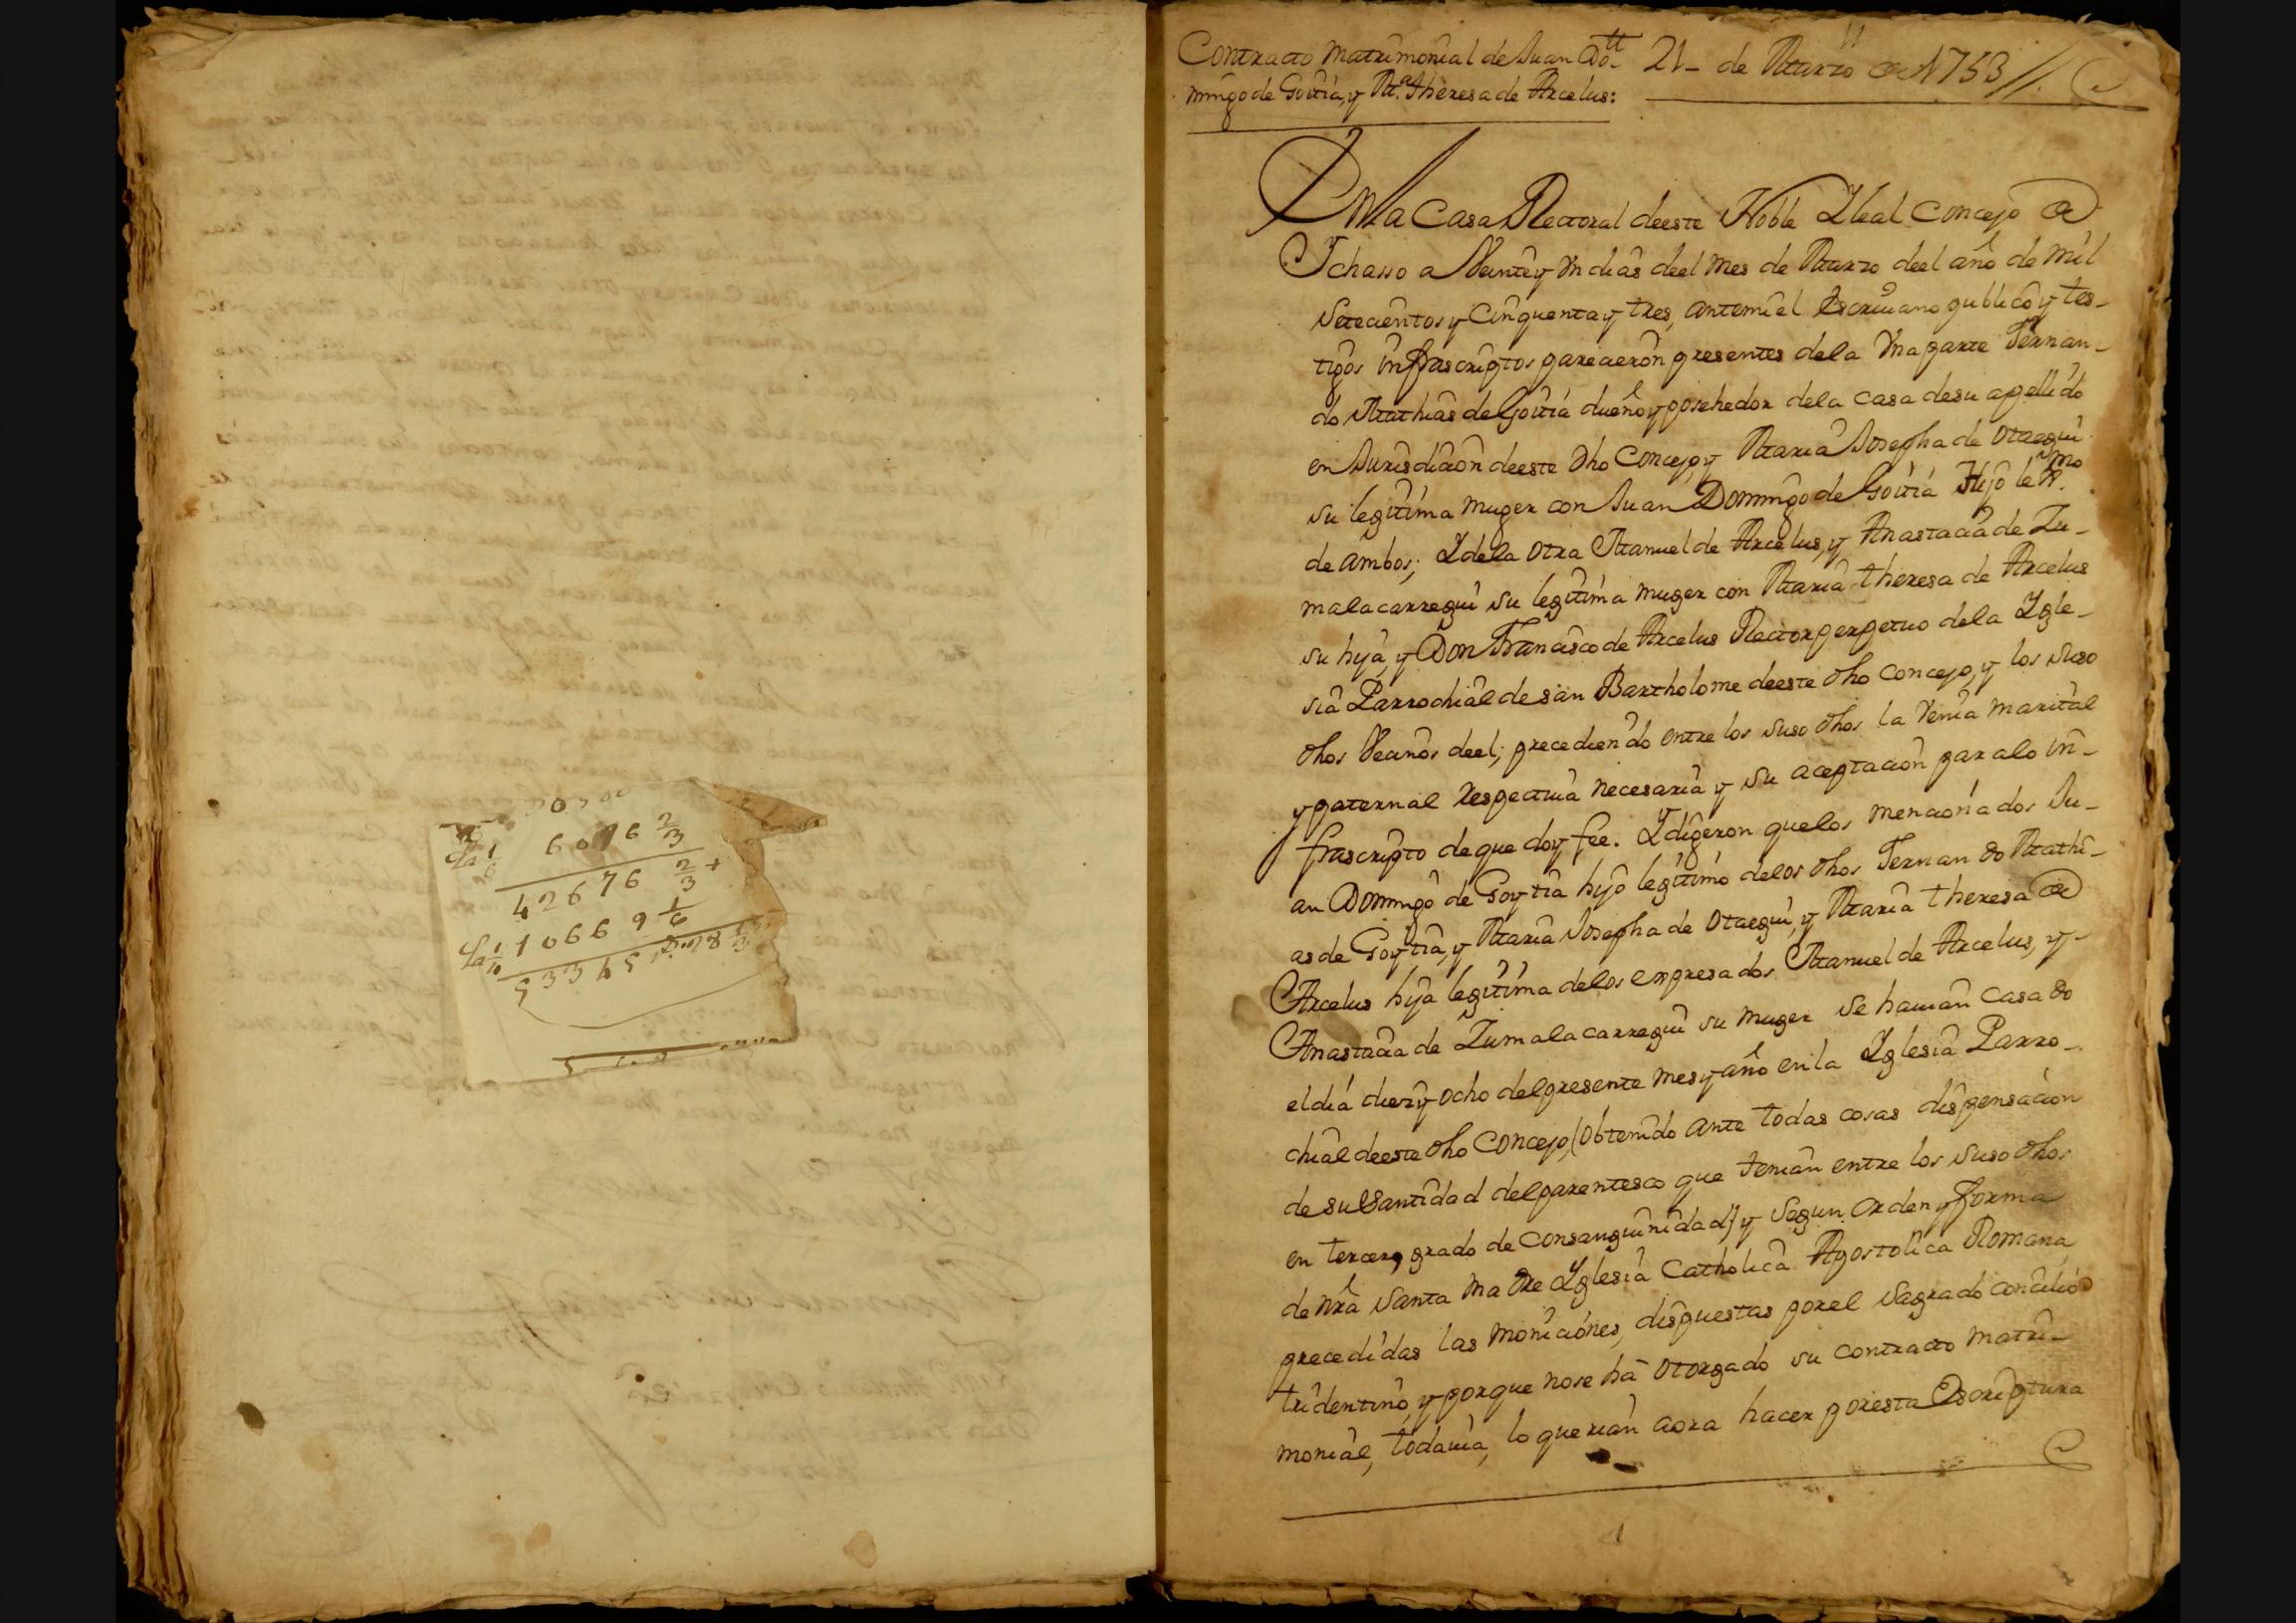 6076 2/3
42676 2/3 +
1/10 110669 1/6
Contracto Matrimonial de Juan Do-
mingo de Goitia, y Mª Theresa de Arcelus:
21- de Marzo de 1753//.
En la Casa Rectoral de este Noble Y leal Concejo de
Ychasso a Veinte y Un dias de el mes de Marzo de el año de mil
Setecientos y Cinquenta y tres, ante mi el Escriuano publico y tes-
tigos infrascriptos parecieron presentes de la Una parte Fernan-
do Mathias de Goitia dueño y posehedor de la Casa de su apellido
en Jurisdicion de este dho Concejo, y Maria Josepha de Otaegui
su legitima muger con Juan Domingo de Goitia Hijo leg.mo
de ambos; Y de la otra Manuel de Arcelus, y Anastacia de Zu-
malacarregui su legitima muger con Maria Theresa de Arcelus
su hija, y Don Francisco de Arcelus Rector perpetuo de la Ygle-
sia Parrochial de san Bartholome de este dho Concejo, y los suso
dhos Vecinos de el; precediendo entre los suso dhos la Venia marital
y paternal respectiua necesaria y su aceptacion para lo in-
frascripto de que doy fee. Y digeron que los mencionados Ju-
an Domingo de Goytia hijo legitimo de los dhos Fernando Mathi-
as de Goytia, y Maria Josepha de Otaegui, y Maria Theresa de
Arcelus hija legitima de los expresados Manuel de Arcelus, y-
Anastacia de Zumalacarregui su muger se hauian casado
el dia diez y ocho del presente mes y año en la Yglesia Parro-
chial de este dho Concejo, (obtenido ante todas cosas dispensacion
de su Santidad del parentesco que tenian entre los suso dhos
en tercero grado de Consanguinidad) y segun orden y forma
de nra Santa Madre Yglesia Catholica Apostolica Romana
precedidas las moniciones, dispuestas por el Sagrado concilio
tridentino, y porque no se há otorgado su contracto matri-
monial, todauia, lo querian aora hacer por esta Escriptura